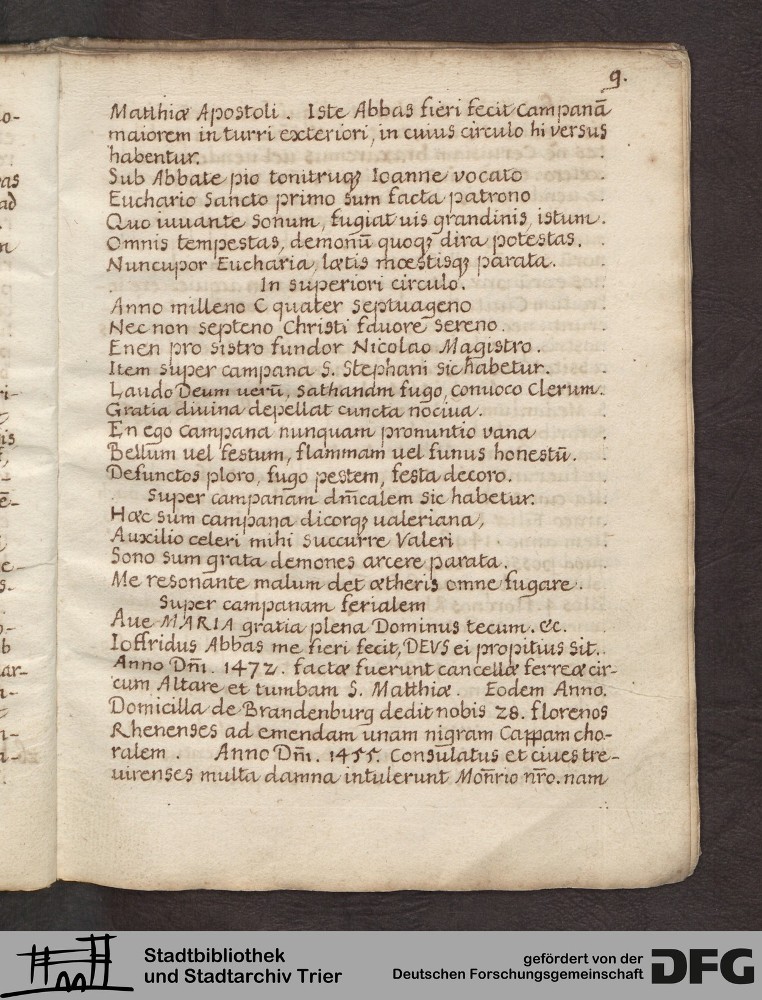 9.
Matthiæ Apostoli. Iste Abbas fieri fecit Campanā
maiorem in turri exteriori, in cuius circulo hi versus
habentur.
Sub Abbate pio tonitruqꝫ Ioanne vocato
Euchario Sancto primo sum facta patrono
Quo iuuante Sonum, fugiat uis grandinis, istum.
Omnis tempestas, demonū quoqꝫ dira potestas.
Nuncupor Eucharia, lætis mœstisqꝫ parata.
In superiori circulo.
Anno milleno C quater Septuageno
Nec non septeno Christi fauore sereno.
Enen pro sistro fundor Nicolao Magistro.
Item super campana S. Stephani sic habetur.
Laudo Deum uerū, Sathanam fugo, conuoco Clerum.
Gratia diuina depellat cuncta nociua.
En ego Campana nunquam pronuntio vana
Bellum uel festum, flammam uel funus honestū.
Defunctos ploro, fugo pestem, festa decoro.
Super campanam dm̄icalem sic habetur.
Hæc sum campana dicorqꝫ ualeriana,
Auxilio celeri mihi succurre Valeri
Sono sum grata demones arcere parata.
Me resonante malum det ætheris omne fugare.
Super campanam ferialem
Aue MARIA gratia plena Dominus tecum. &c.
Ioffridus Abbas me fieri fecit, DEUS ei propitius sit.
Anno Dm̄i. 1472. factæ fuerunt cancellæ ferreæ cir-
cum Altare et tumbam S. Matthiæ. Eodem Anno.
Domicilla de Brandenburg dedit nobis 28. florenos
Rhenenses ad emendam unam nigram Cappam cho-
ralem. Anno Dm̄i. 1455. Consulatus et ciues tre-
uirenses multa damna intulerunt Mon̄rio nr̄o. nam
Stadtbibliothek
und Stadtarchiv Trier
gefördert von der
Deutschen Forschungsgemeinschaft
DFG